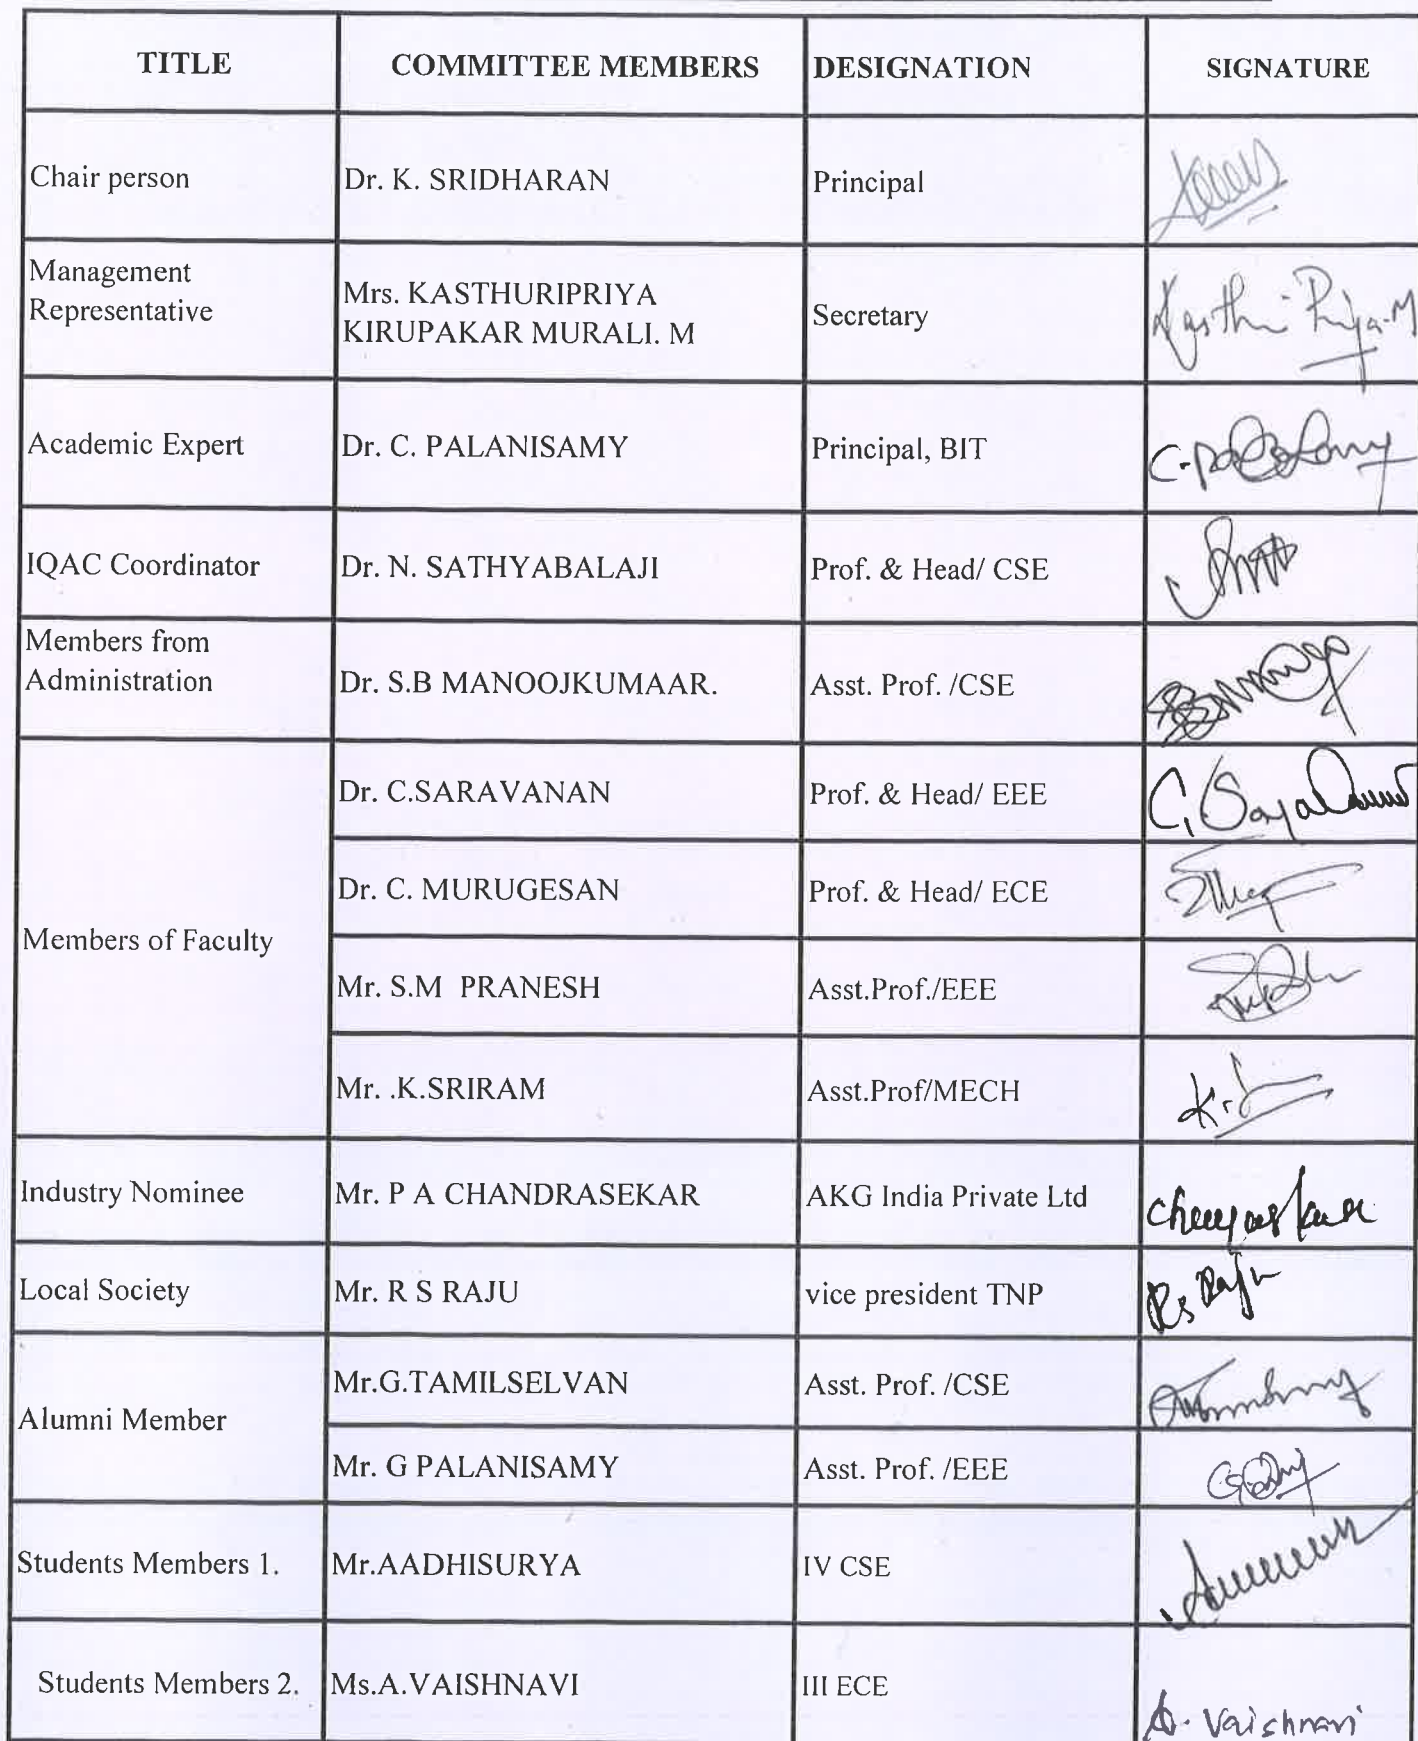 TITLE COMMITTEE MEMBERS DESIGNATION SIGNATURE
Chair person Dr. K. SRIDHARAN Principal
Management
Representative
Mrs. KASTHURIPRIYA
KIRUPAKAR MURALI. M
Secretary
Academic Expert Dr. C. PALANISAMY Principal, BIT
IQAC Coordinator Dr. N. SATHYABALAJI Prof. & Head/ CSE
Members from
Administration
Dr. S.B MANOOJKUMAAR. Asst. Prof. /CSE
Members of Faculty
Dr. C.SARAVANAN Prof. & Head/ EEE
Dr. C. MURUGESAN Prof. & Head/ ECE
Mr. S.M PRANESH Asst.Prof./EEE
Mr. .K.SRIRAM Asst.Prof/MECH
Industry Nominee Mr. P A CHANDRASEKAR AKG India Private Ltd
Local Society Mr. R S RAJU vice president TNP Rs Raju
Alumni Member
Mr.G.TAMILSELVAN Asst. Prof. /CSE
Mr. G PALANISAMY Asst. Prof. /EEE
Students Members 1. Mr.AADHISURYA IV CSE
Students Members 2. Ms.A.VAISHNAVI III ECE A. Vaishnavi